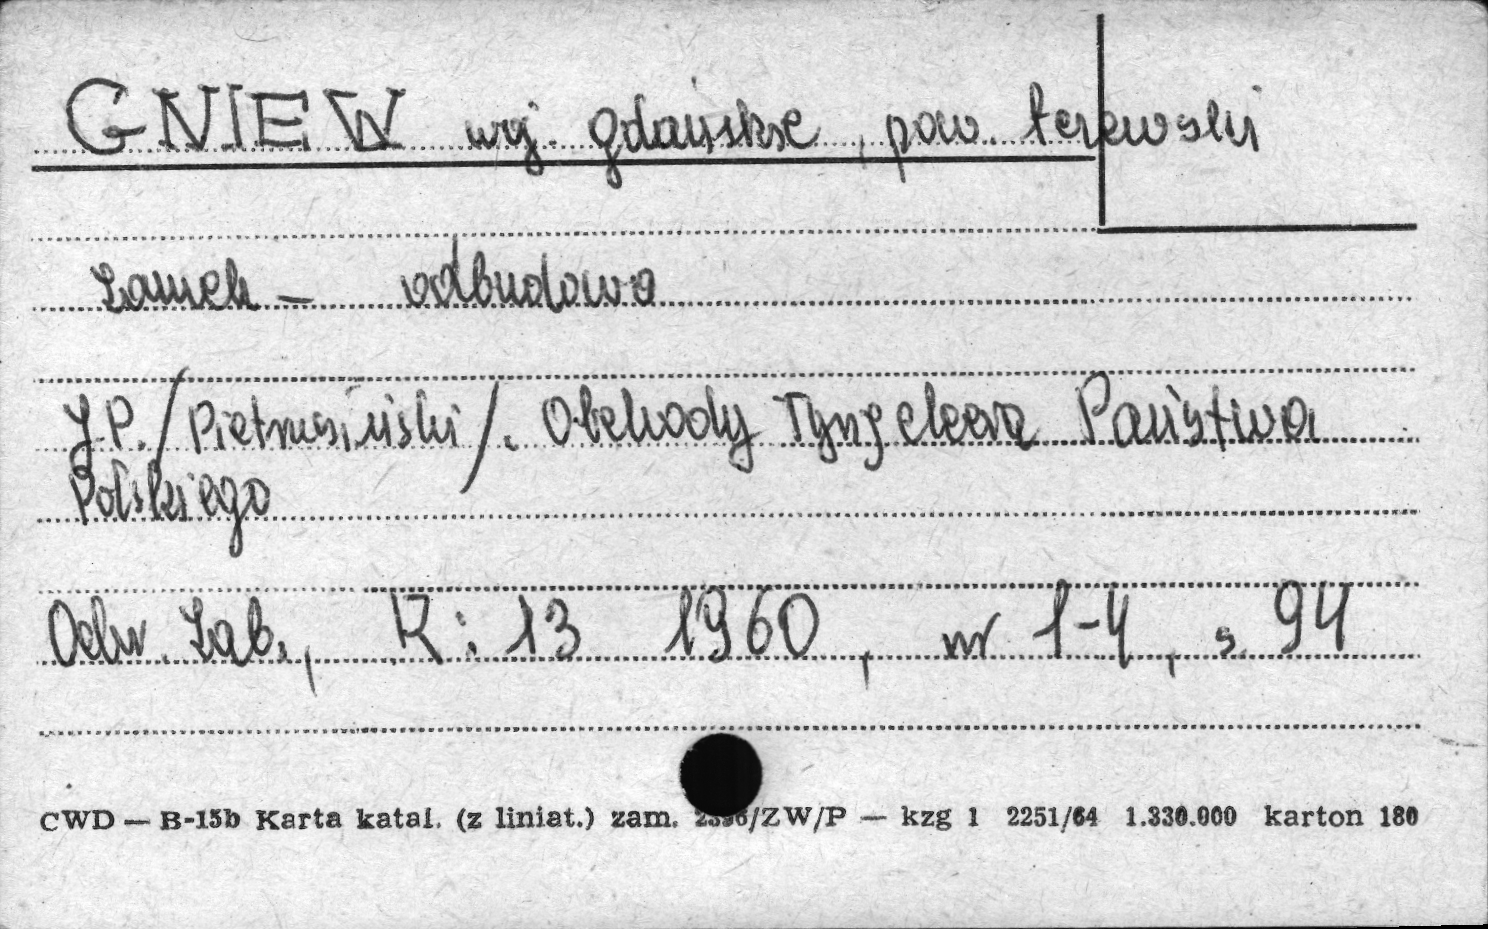 GNIEW woj. gdańskie, pow. tczewski
Zamek – odbudowa
J.P. /Pietrusiński/. Obchody Tysiąclecia Państwa
Polskiego
Ochr. Zab., R: 13 1960, nr 1-4, s. 94
CWD — B-15b Karta katal. (z liniat.) zam. 2396/ZW/P — kzg 1 2251/64 1.330.000 karton 180